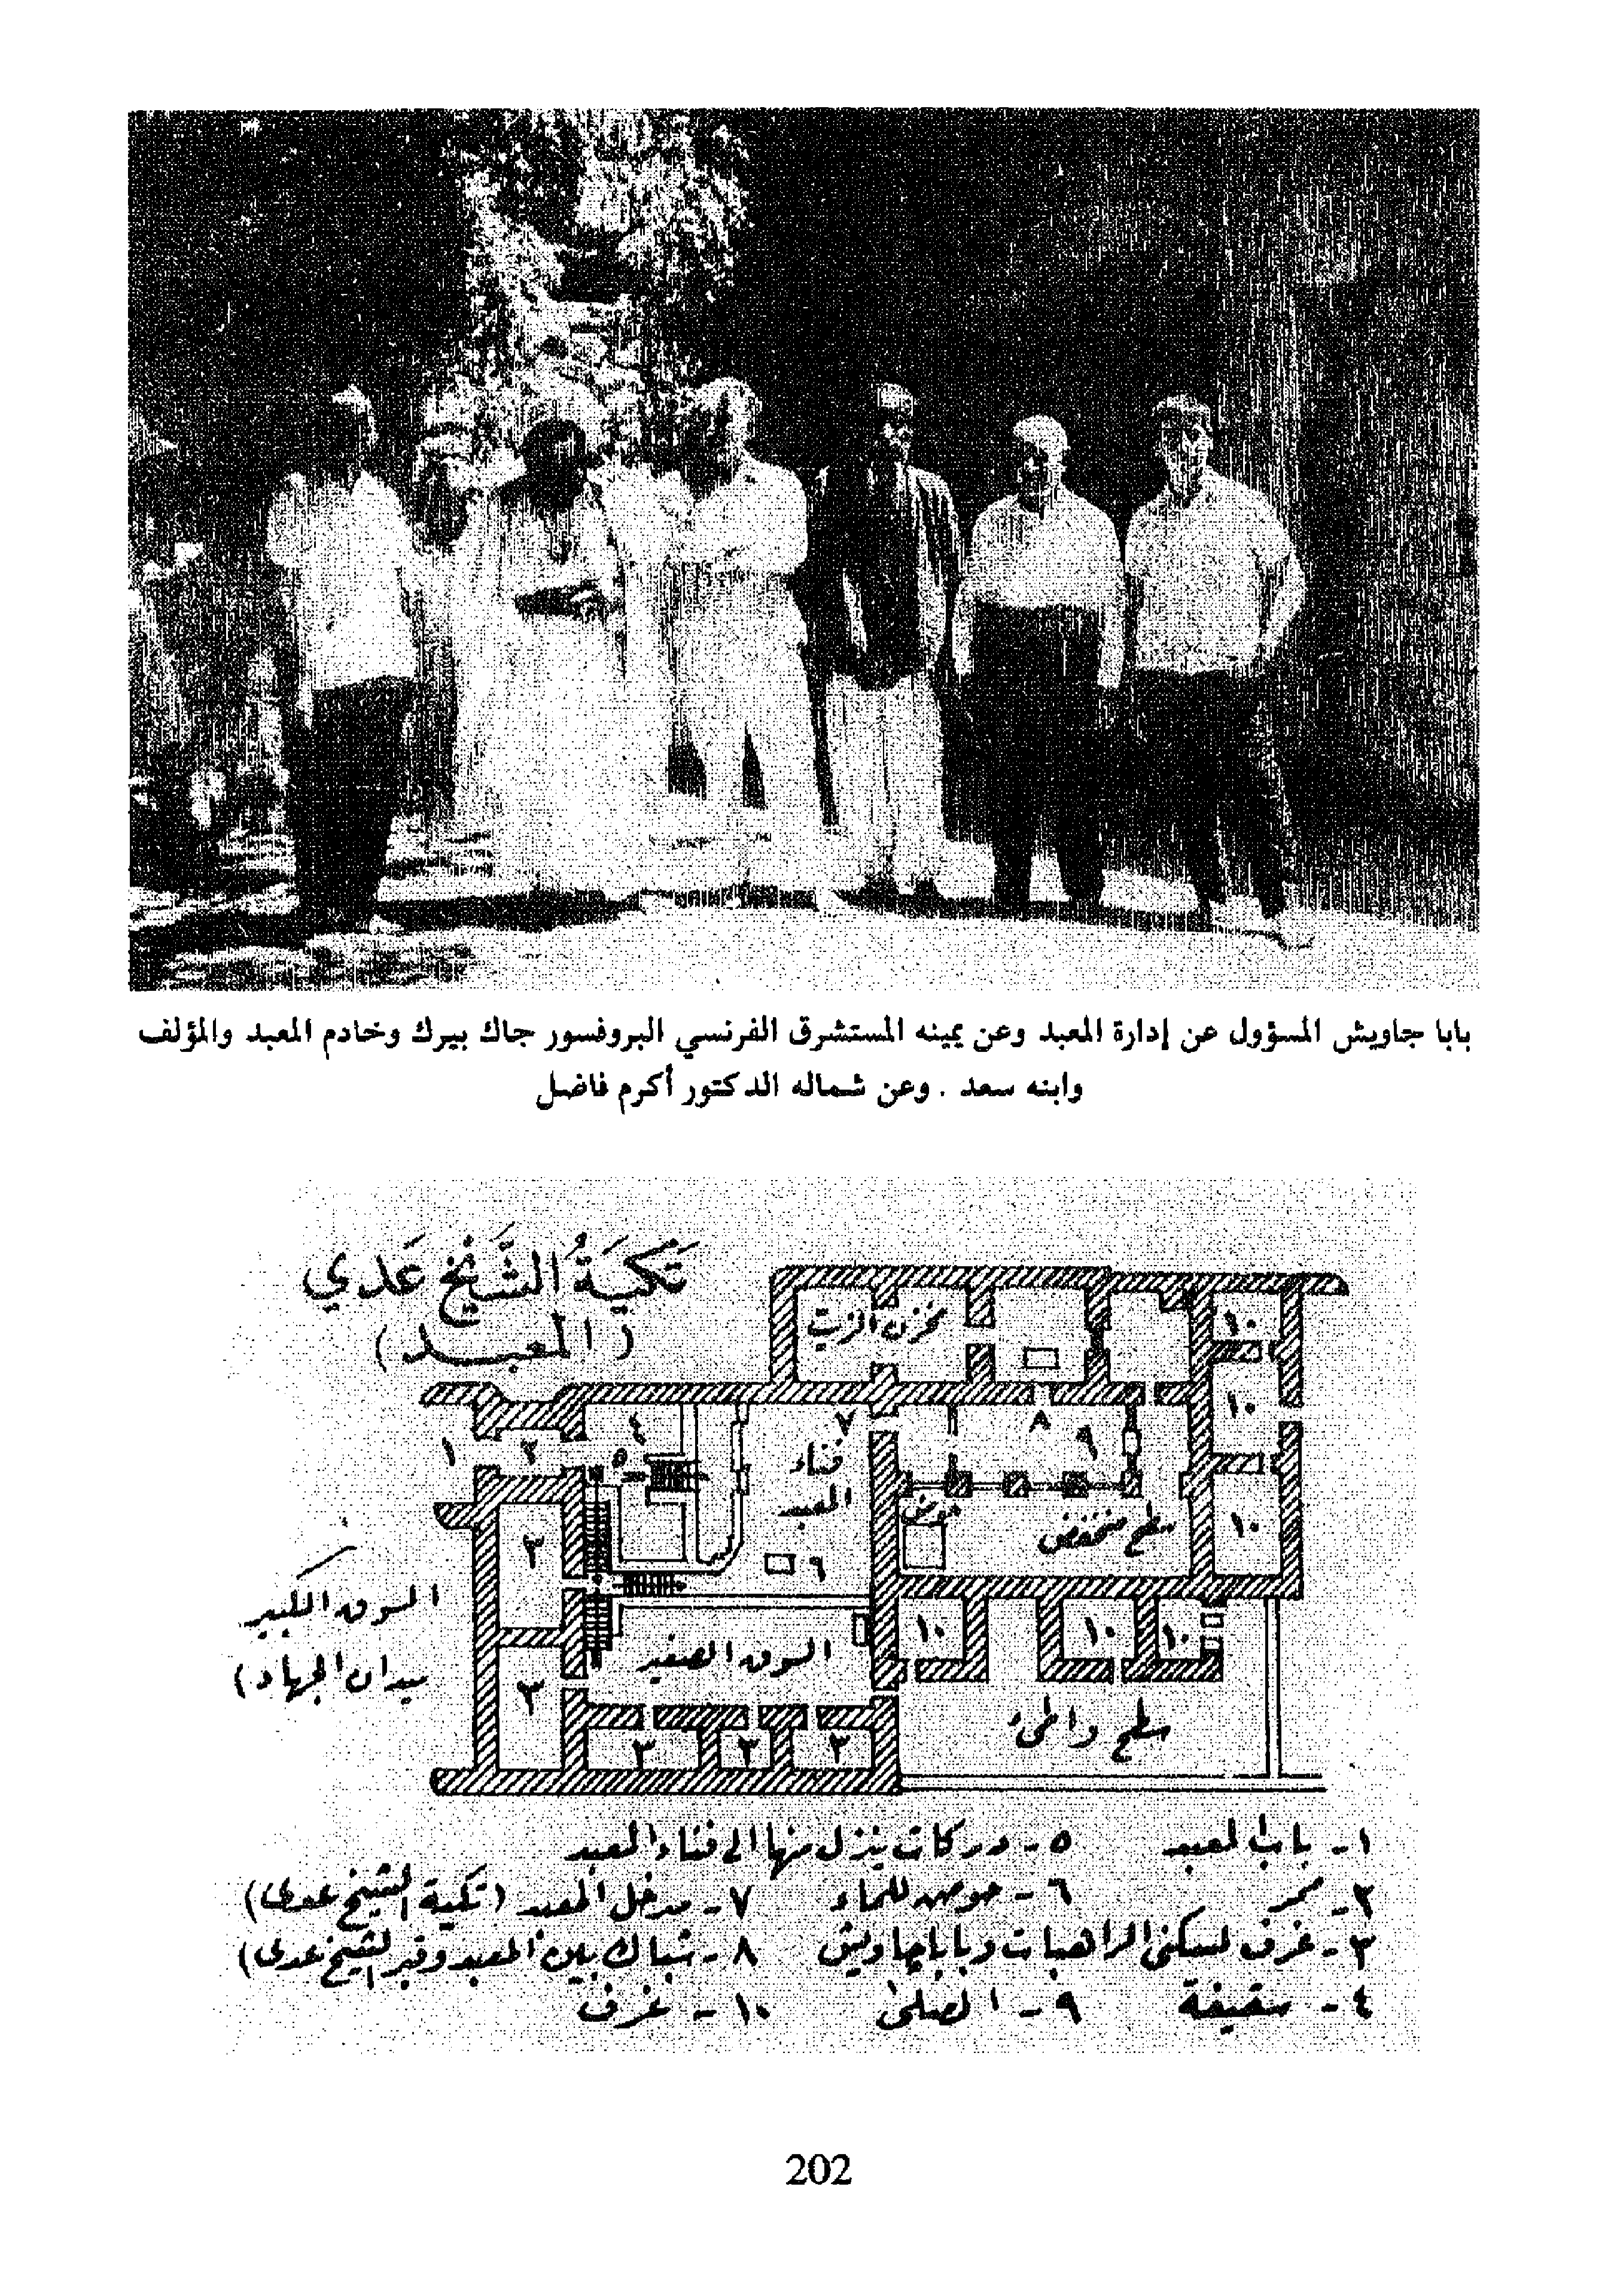 بابا جاويش المسؤول عن إدارة المعبد وعن يمينه المستشرق الفرنسي البروفسور جاك بيرك وخادم المعبد والمؤلف
وابنه سعد . وعن شماله الدكتور أكرم فاضل
تَكيَةُ الشَّيخ عَدي
( المعبـــد )
مخزن الزيت
١٠
١٠
١٠
١
٢
٤
٥
٧
٨
٩
فناء
المعبد
حوض
سطح منخفض
٣
٦
السوق الكبير
ميدان الجهاد )
السوق الصغير
١٠
١٠
١٠
٣
سطح واطئ
٣
٣
٣
١ - باب المعبد
٥ - دركات ينزل منها الى فناء المعبد
٢ - ممر
٦ - حوض للماء
٧ - مدخل المعبد ( تكية الشيخ عدى )
٣ - غرف لسكنى الراهبات وبابا چاويش
٨ - شباك بين المعبد وقبر الشيخ عدى )
٤ - سقيفة
٩ - المصلى
١٠ - غرف
202